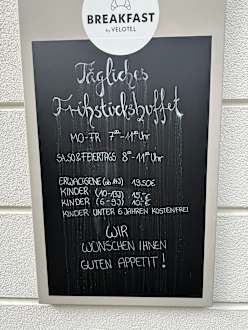 BREAKFAST
by VELOTEL
Tägliches
Frühstücksbuffet
MO-FR 7⁰⁰-11⁰⁰ Uhr
SA, SO & FEIERTAGS 8⁰⁰-11⁰⁰ Uhr
ERWACHSENE 19,50€
KINDER
KINDER
KINDER UNTER 6 JAHREN KOSTENFREI
WIR
WÜNSCHEN IHNEN
GUTEN APPETIT!